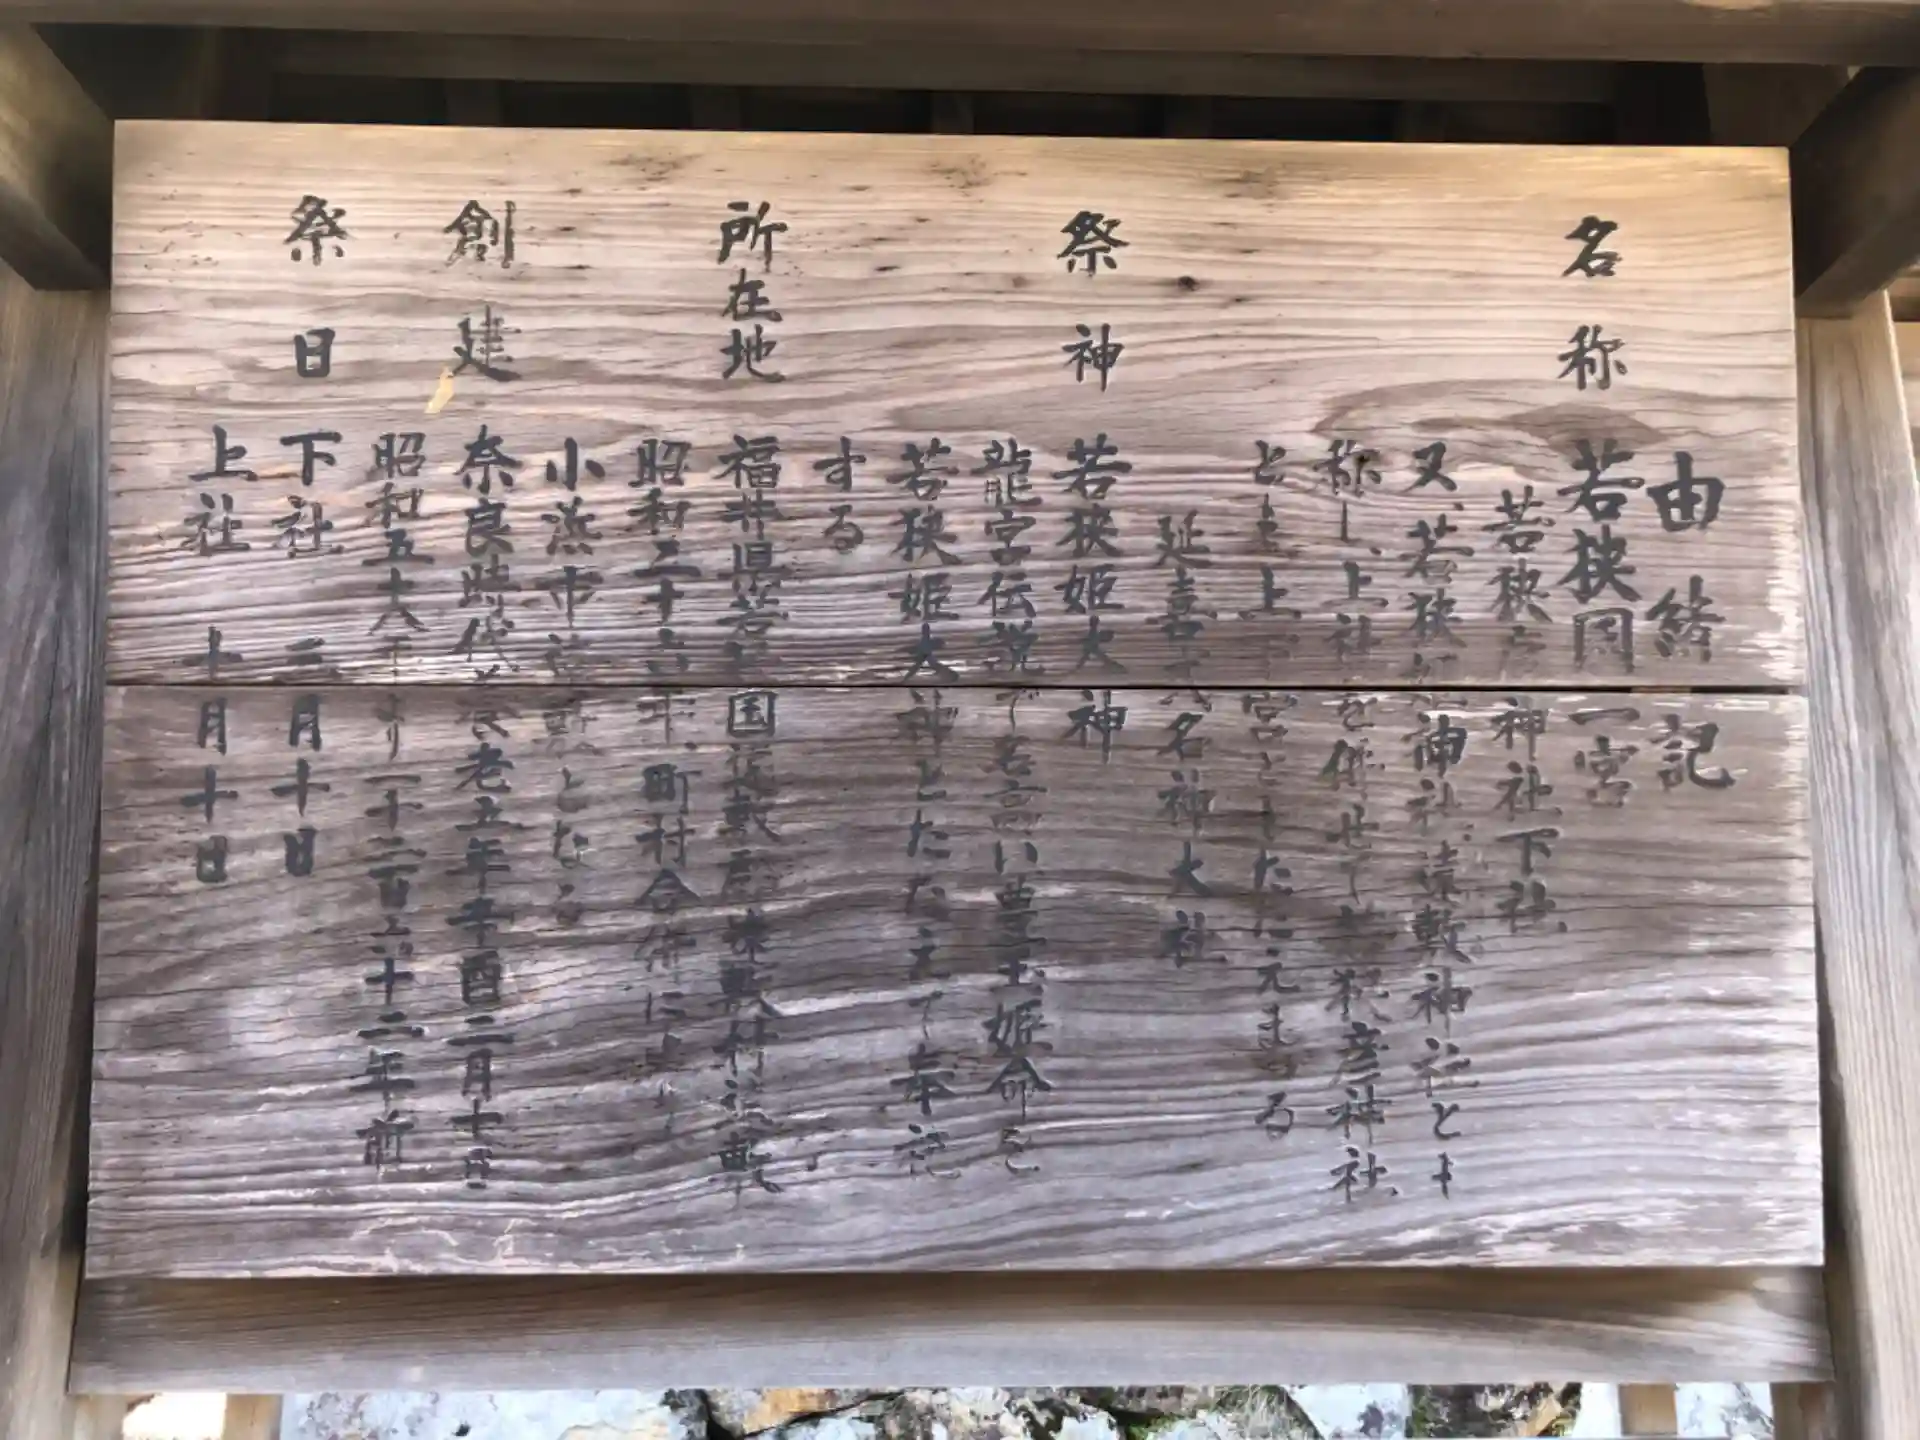 由緒記
名称 若狭国一宮
若狭彦神社下社
又、若狭姫神社、遠敷神社とも
称し、上社を併せて若狭彦神社
とも上下宮ともたたえまつる
延喜式名神大社
祭神 若狭姫大神
龍宮伝説で名高い豊玉姫命を
若狭姫大神とたたえて奉祀
する
福井県若狭国遠敷郡遠敷村遠敷
所在地
昭和二十六年、町村合併により
小浜市遠敷となる
創建 奈良時代養老五年辛酉二月十日
昭和五十八年より一千二百六十二年前
祭日 下社 三月十日
上社 十月十日